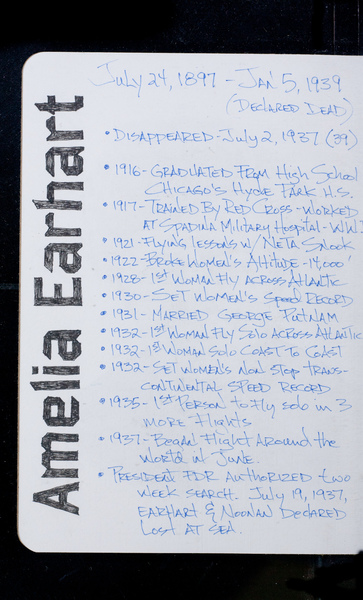 Amelia Earhart
July 24, 1897 - Jan 5, 1939
(Declared Dead)
• Disappeared - July 2, 1937 (39)
• 1916 - Graduated From High School
Chicago's Hyde Park H.S.
• 1917 - Trained By Red Cross - Worked
at Spadina Military Hospital - WWI
• 1921 - Flying lessons w/ Neta Snook
• 1922 - Broke Women's Altitude - 14,000'
• 1928 - 1st Woman Fly Across Atlantic
• 1930 - Set Women's Speed Record
• 1931 - Married George Putnam
• 1932 - 1st Woman Fly Solo Across Atlantic
• 1932 - 1st Woman Solo Coast To Coast
• 1932 - Set Women's Non Stop Trans-
continental Speed Record
• 1935 - 1st Person to Fly solo in 3
more Flights
• 1937 - Began Flight Around the
World in June.
• President FDR Authorized two
week search. July 19, 1937,
Earhart & Noonan Declared
Lost At Sea.